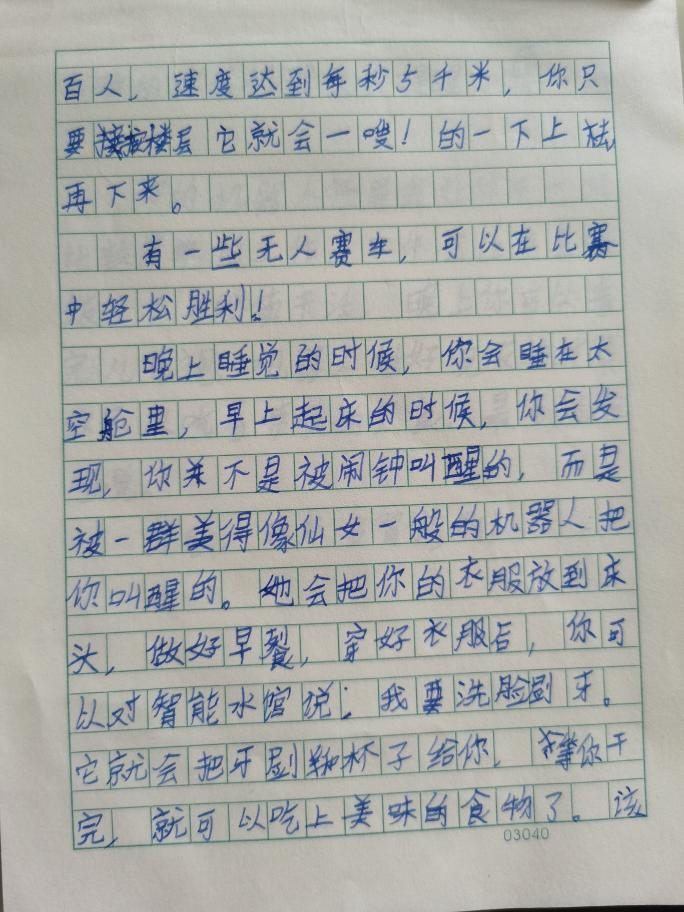 百人，速度达到每秒5千米，你只
要按楼层它就会一嗖！的一下上去，
再下来。
有一些无人赛车，可以在比赛
中轻松胜利！
晚上睡觉的时候，你会睡在太
空舱里，早上起床的时候，你会发
现，你并不是被闹钟叫醒的，而是
被一群美得像仙女一般的机器人把
你叫醒的。她会把你的衣服放到床
头，做好早餐，穿好衣服后，你可
以对智能水馆说：我要洗脸刷牙。
它就会把牙刷和杯子给你，等你干
完，就可以吃上美味的食物了。该
03040